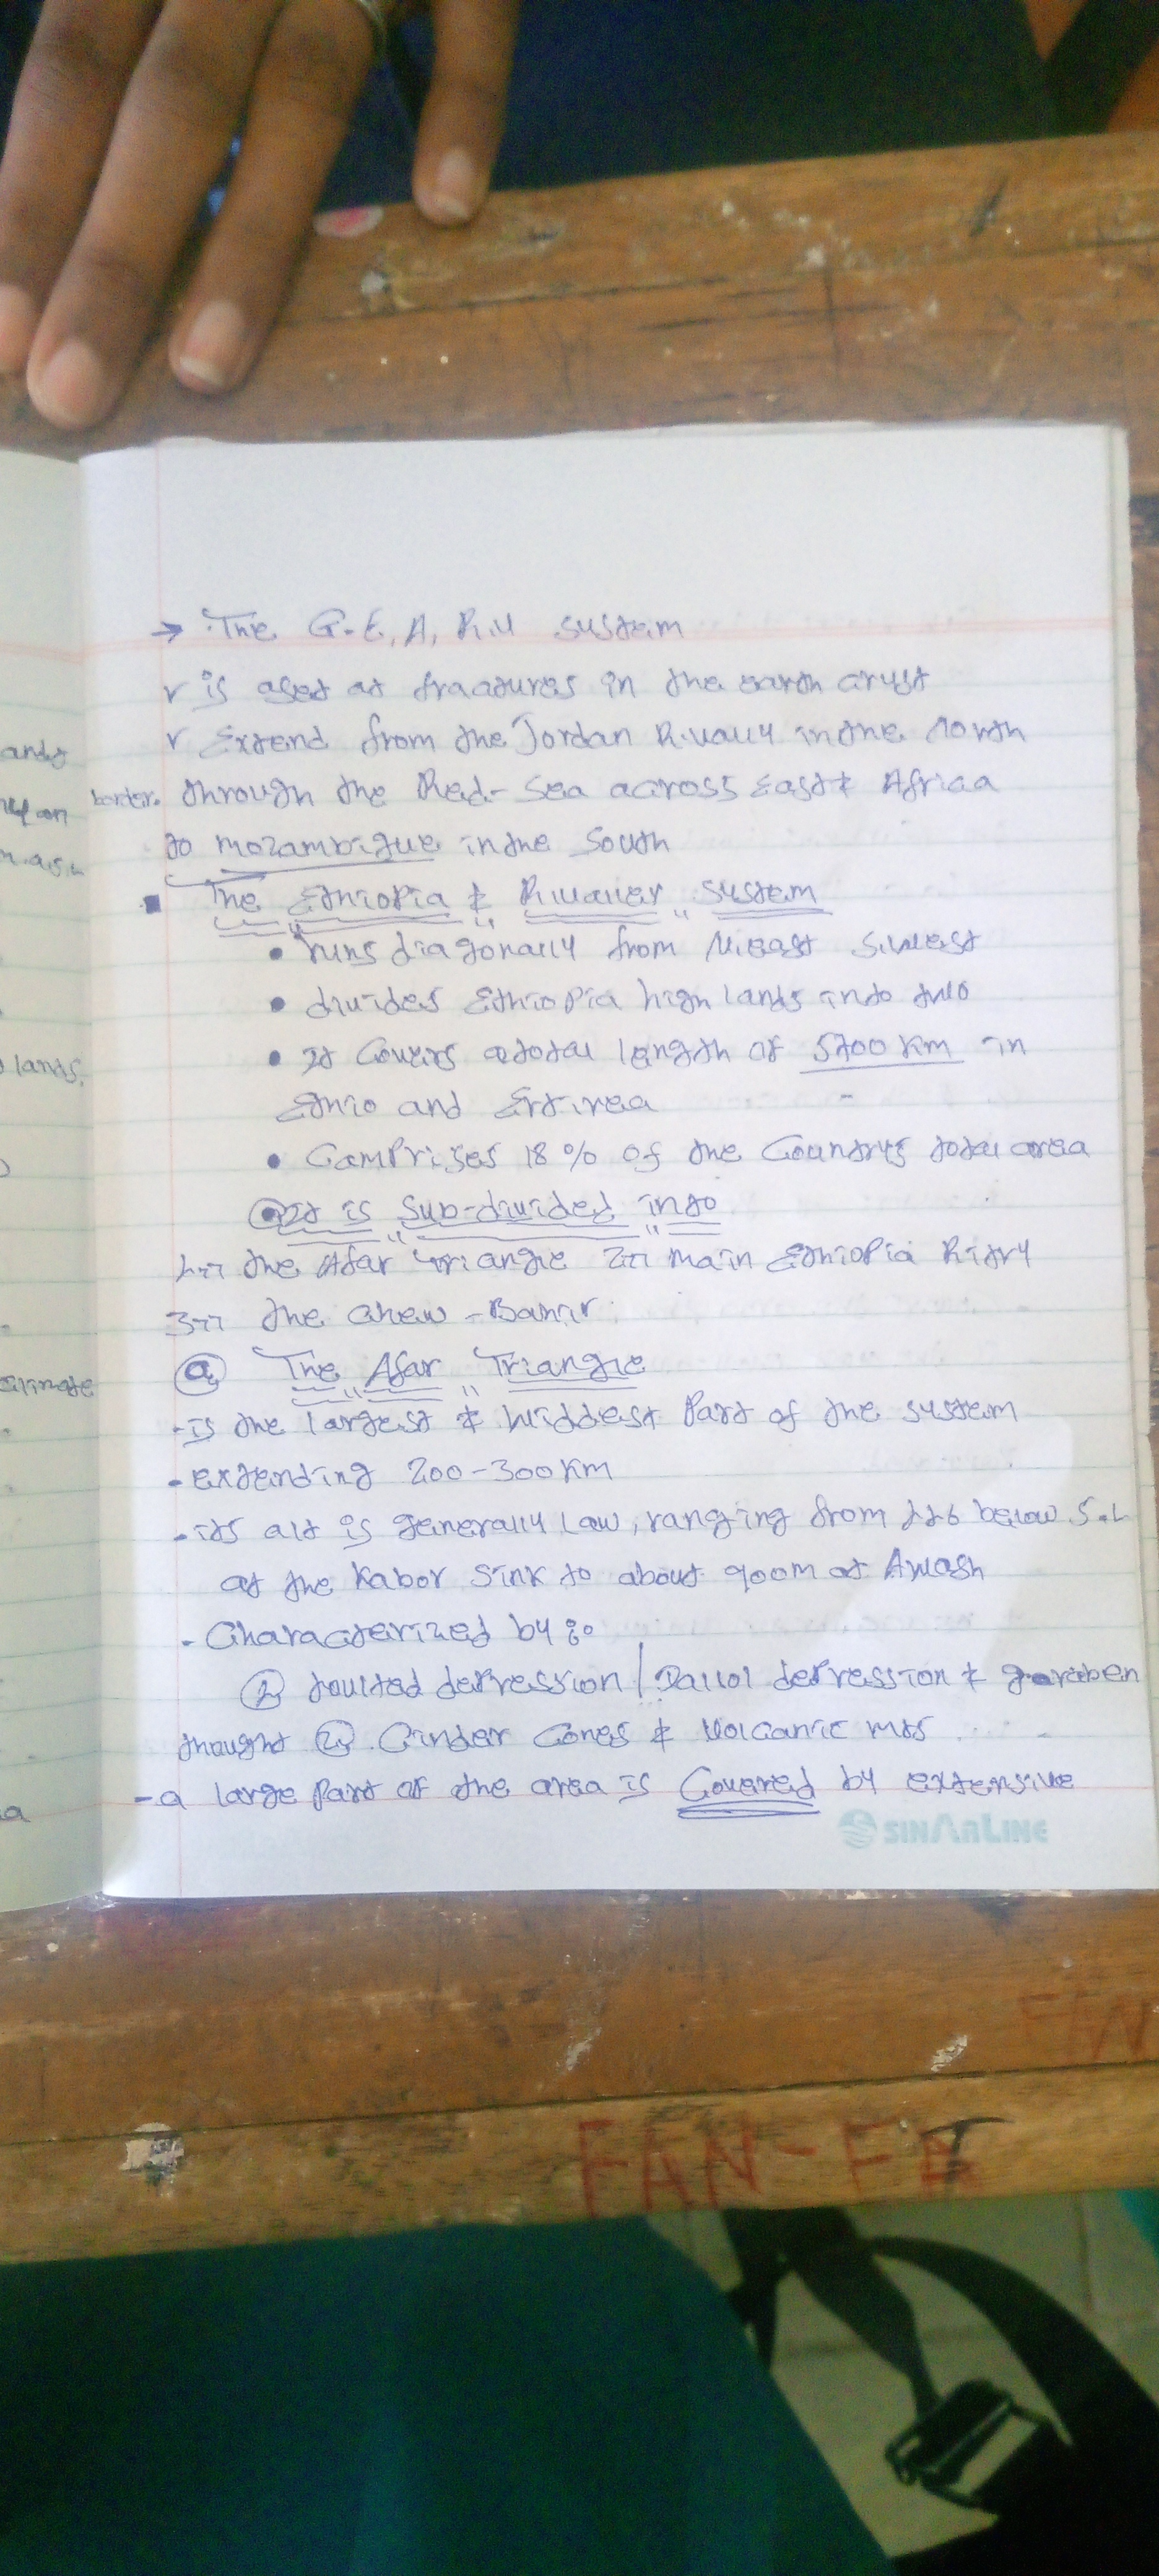 → The G.E.A. R.V system
is at fractures in the earth crust
Extend from the Jordan R.vally in the North
border. through the Red-Sea across East & Africa
to mozambique in the South
The Ethiopia & R.valley system
• runs diagonally from N.East S.West
• divides Ethiopia high lands into two
• It Covers a total length of 5700 km in
Ethio and Ertirea
• Comprises 18 % of the Countrys total area
It is Sub-divided into
the Afar triangle main Ethiopia
the Chew - Bahir
a The Afar Triangle
- is the largest & widdest Part of the system
- extending 200-300 km
- its alt is generally Law, ranging from below S.L
at the Kabor Sink to about 900m at Awash
- Characterized by
faulted depression / Dallol depression & graben
thought Cinder Cones & Volcanic mts
- a large Part of the area is Covered by extensive
SINARLINE
lands,
climate
FAN-FA